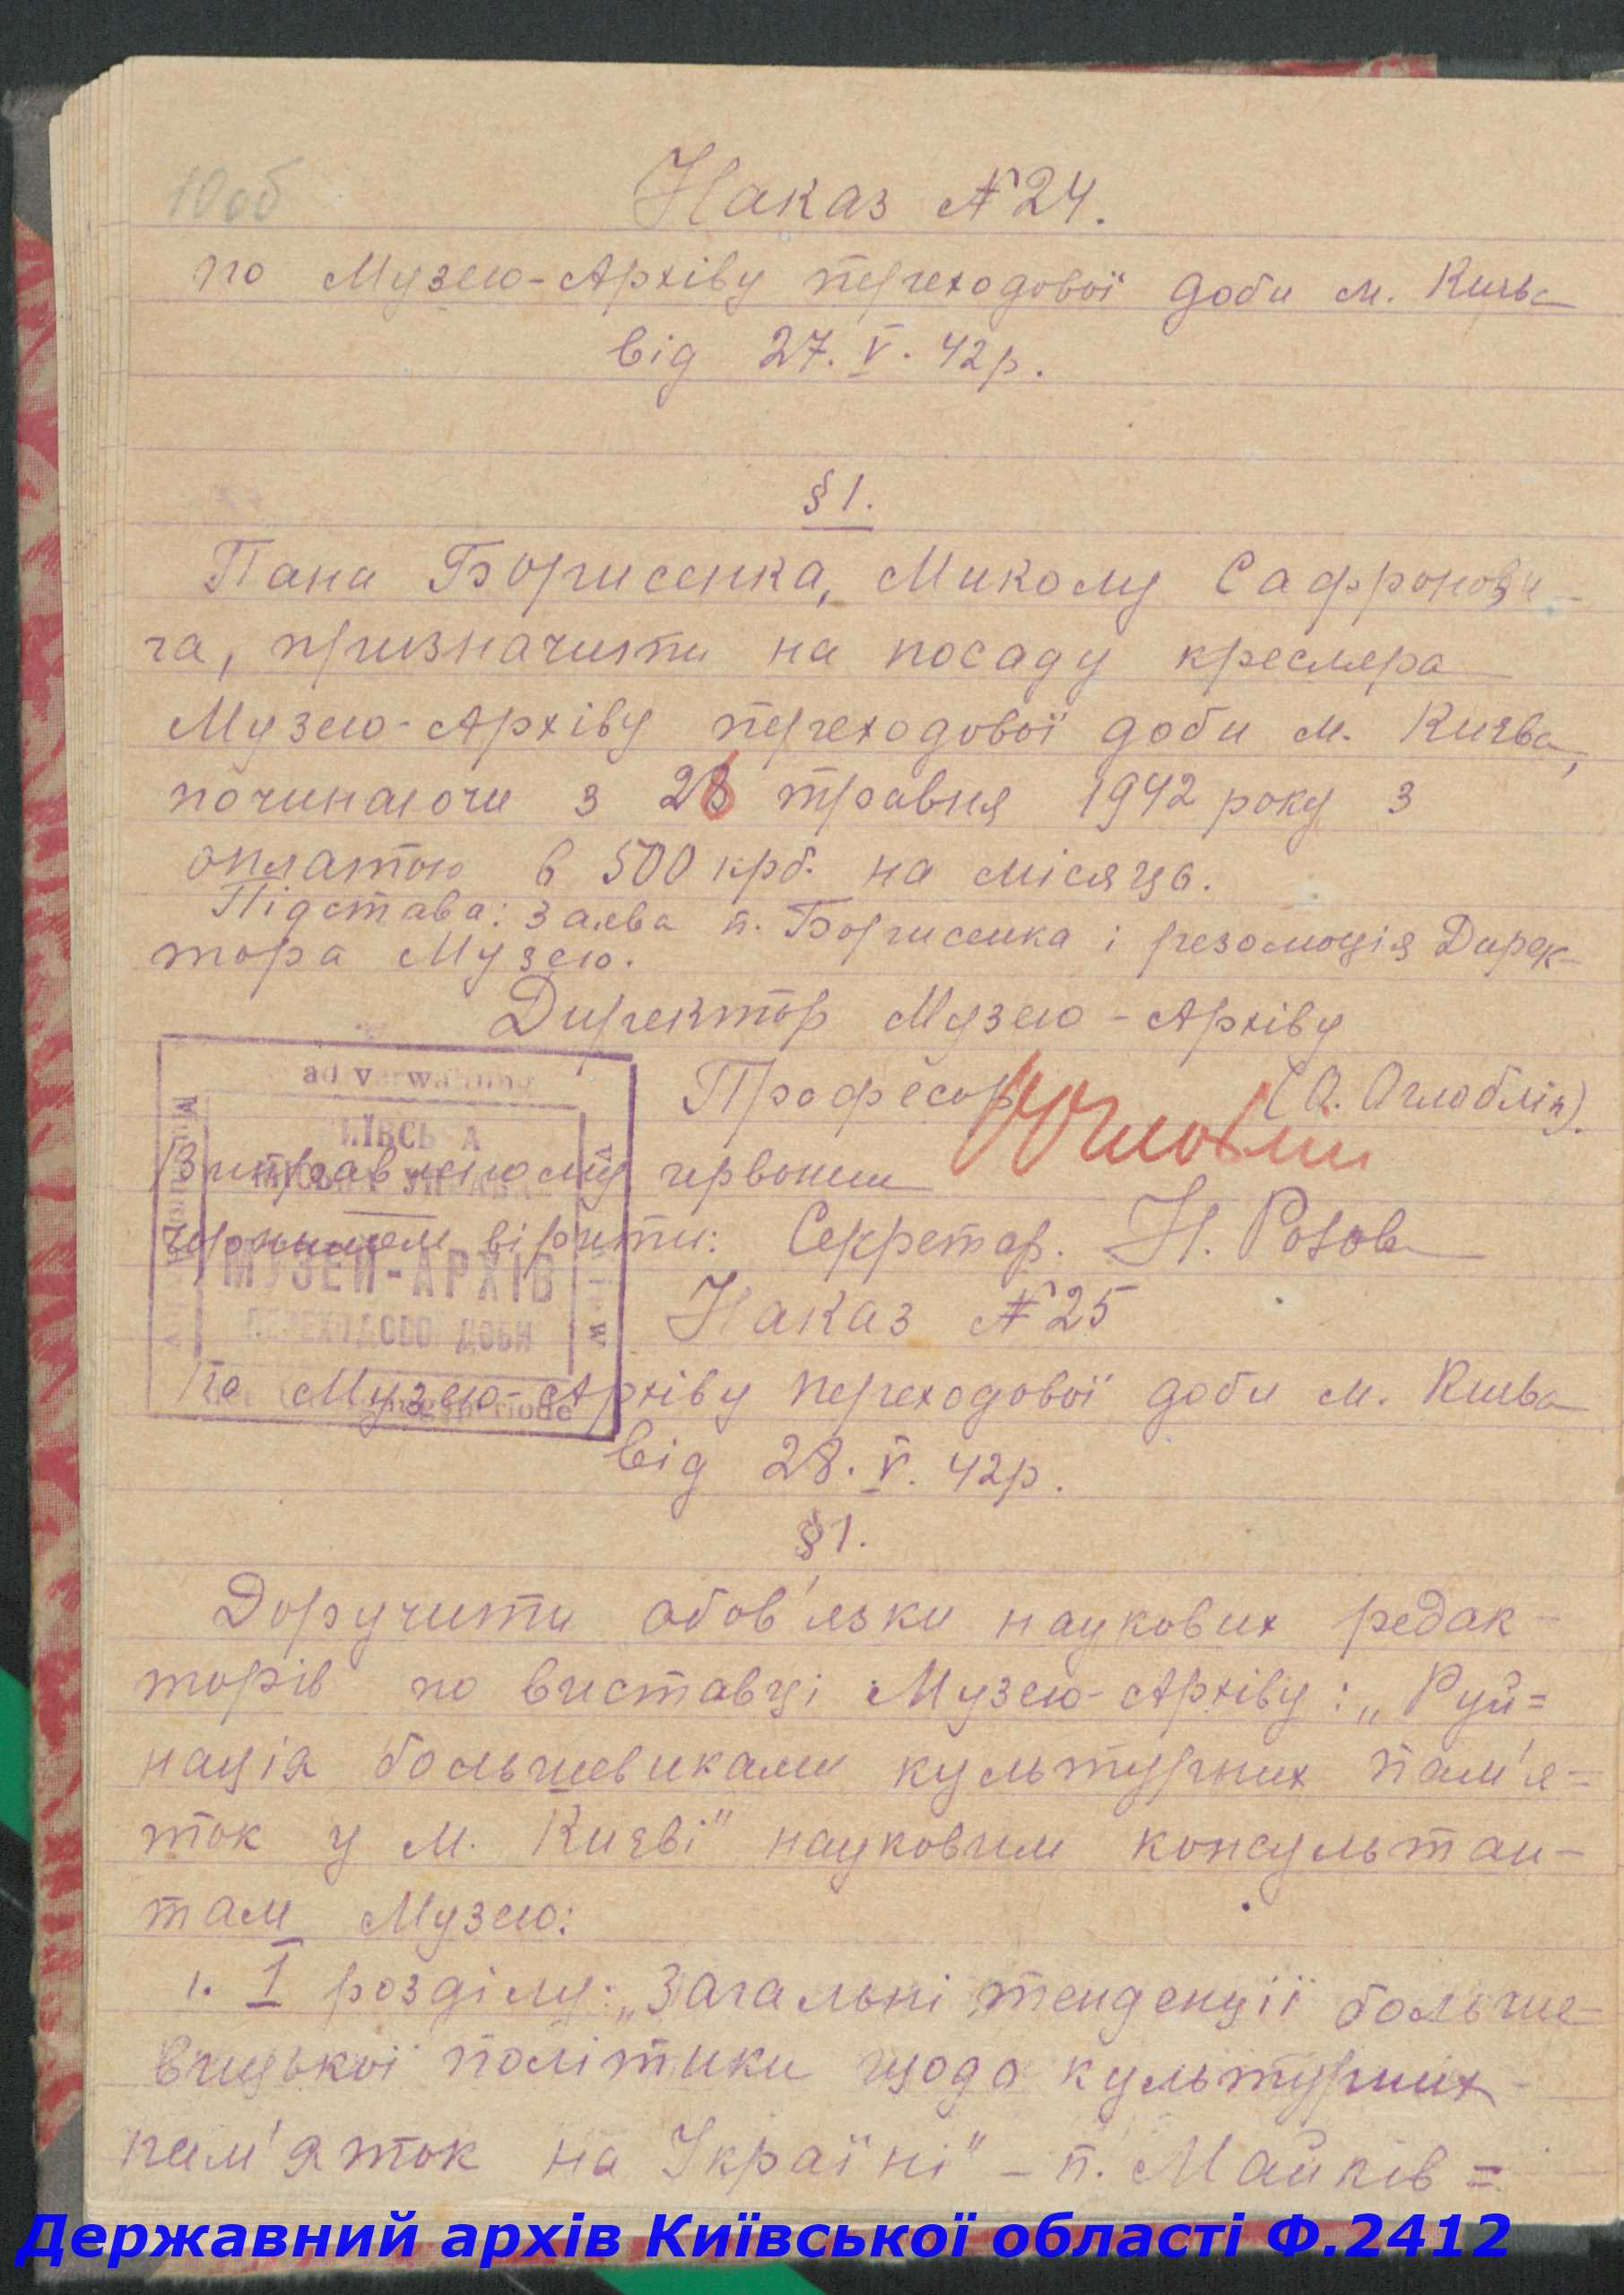 10об
Наказ №24.
по Музею-Архіву переходової доби м. Києва
від 27. V. 42р.
§1.
Пана Борисенка, Миколу Сафронови-
ча, призначити на посаду креслера
Музею-Архіву переходової доби м. Києва,
починаючи з 28 травня 1942 року з
оплатою в 500 крб. на місяць.
Підстава: Заява п. Борисенка і резолюція Дирек-
тора Музею.
Директор Музею-Архіву
Професор (О. Оглоблін).
Виправленому червоним
чорнилом вірити: Секретар. Н. Розова
ad verwaltung
КИЇВСЬКА
МІСЬКА УПРАВА
МУЗЕЙ-АРХІВ
ПЕРЕХОДОВОЇ ДОБИ
Наказ №25
По Музею-Архіву переходової доби м. Києва
від 28. V. 42р.
§1.
Доручити обов'язки наукових редак-
торів по виставці Музею-Архіву: „Руй=
нація большевиками культурних пам'я=
ток у м. Києві" науковим консультан-
там Музею:
1. I розділу: „Загальні тенденції больше-
вицької політики щодо культурних
пам'яток на Україні" – п.
Державний архів Київської області Ф.2412